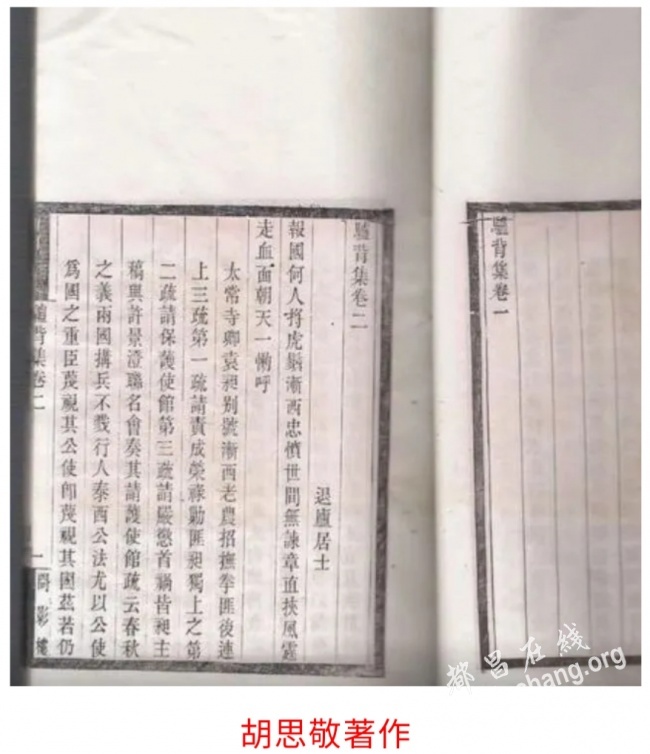 驢背集卷一
驢背集卷二
退廬居士
報國何人捋虎鬚漸西忠憤世間無諫章直挾風霆
走血面朝天一慟呼
太常寺卿袁昶別號漸西老農招撫拳匪後連
上三疏第一疏請責成榮祿勦匪昶獨上之第
二疏請保護使館第三疏請嚴懲首禍皆昶主
稿與許景澄聯名會奏其請護使館疏云春秋
之義兩國搆兵不戮行人泰西公法尤以公使
爲國之重臣蔑視其公使卽蔑視其國茲若仍
驢背集卷二
問影樓
都昌在线
chang.org
胡思敬著作